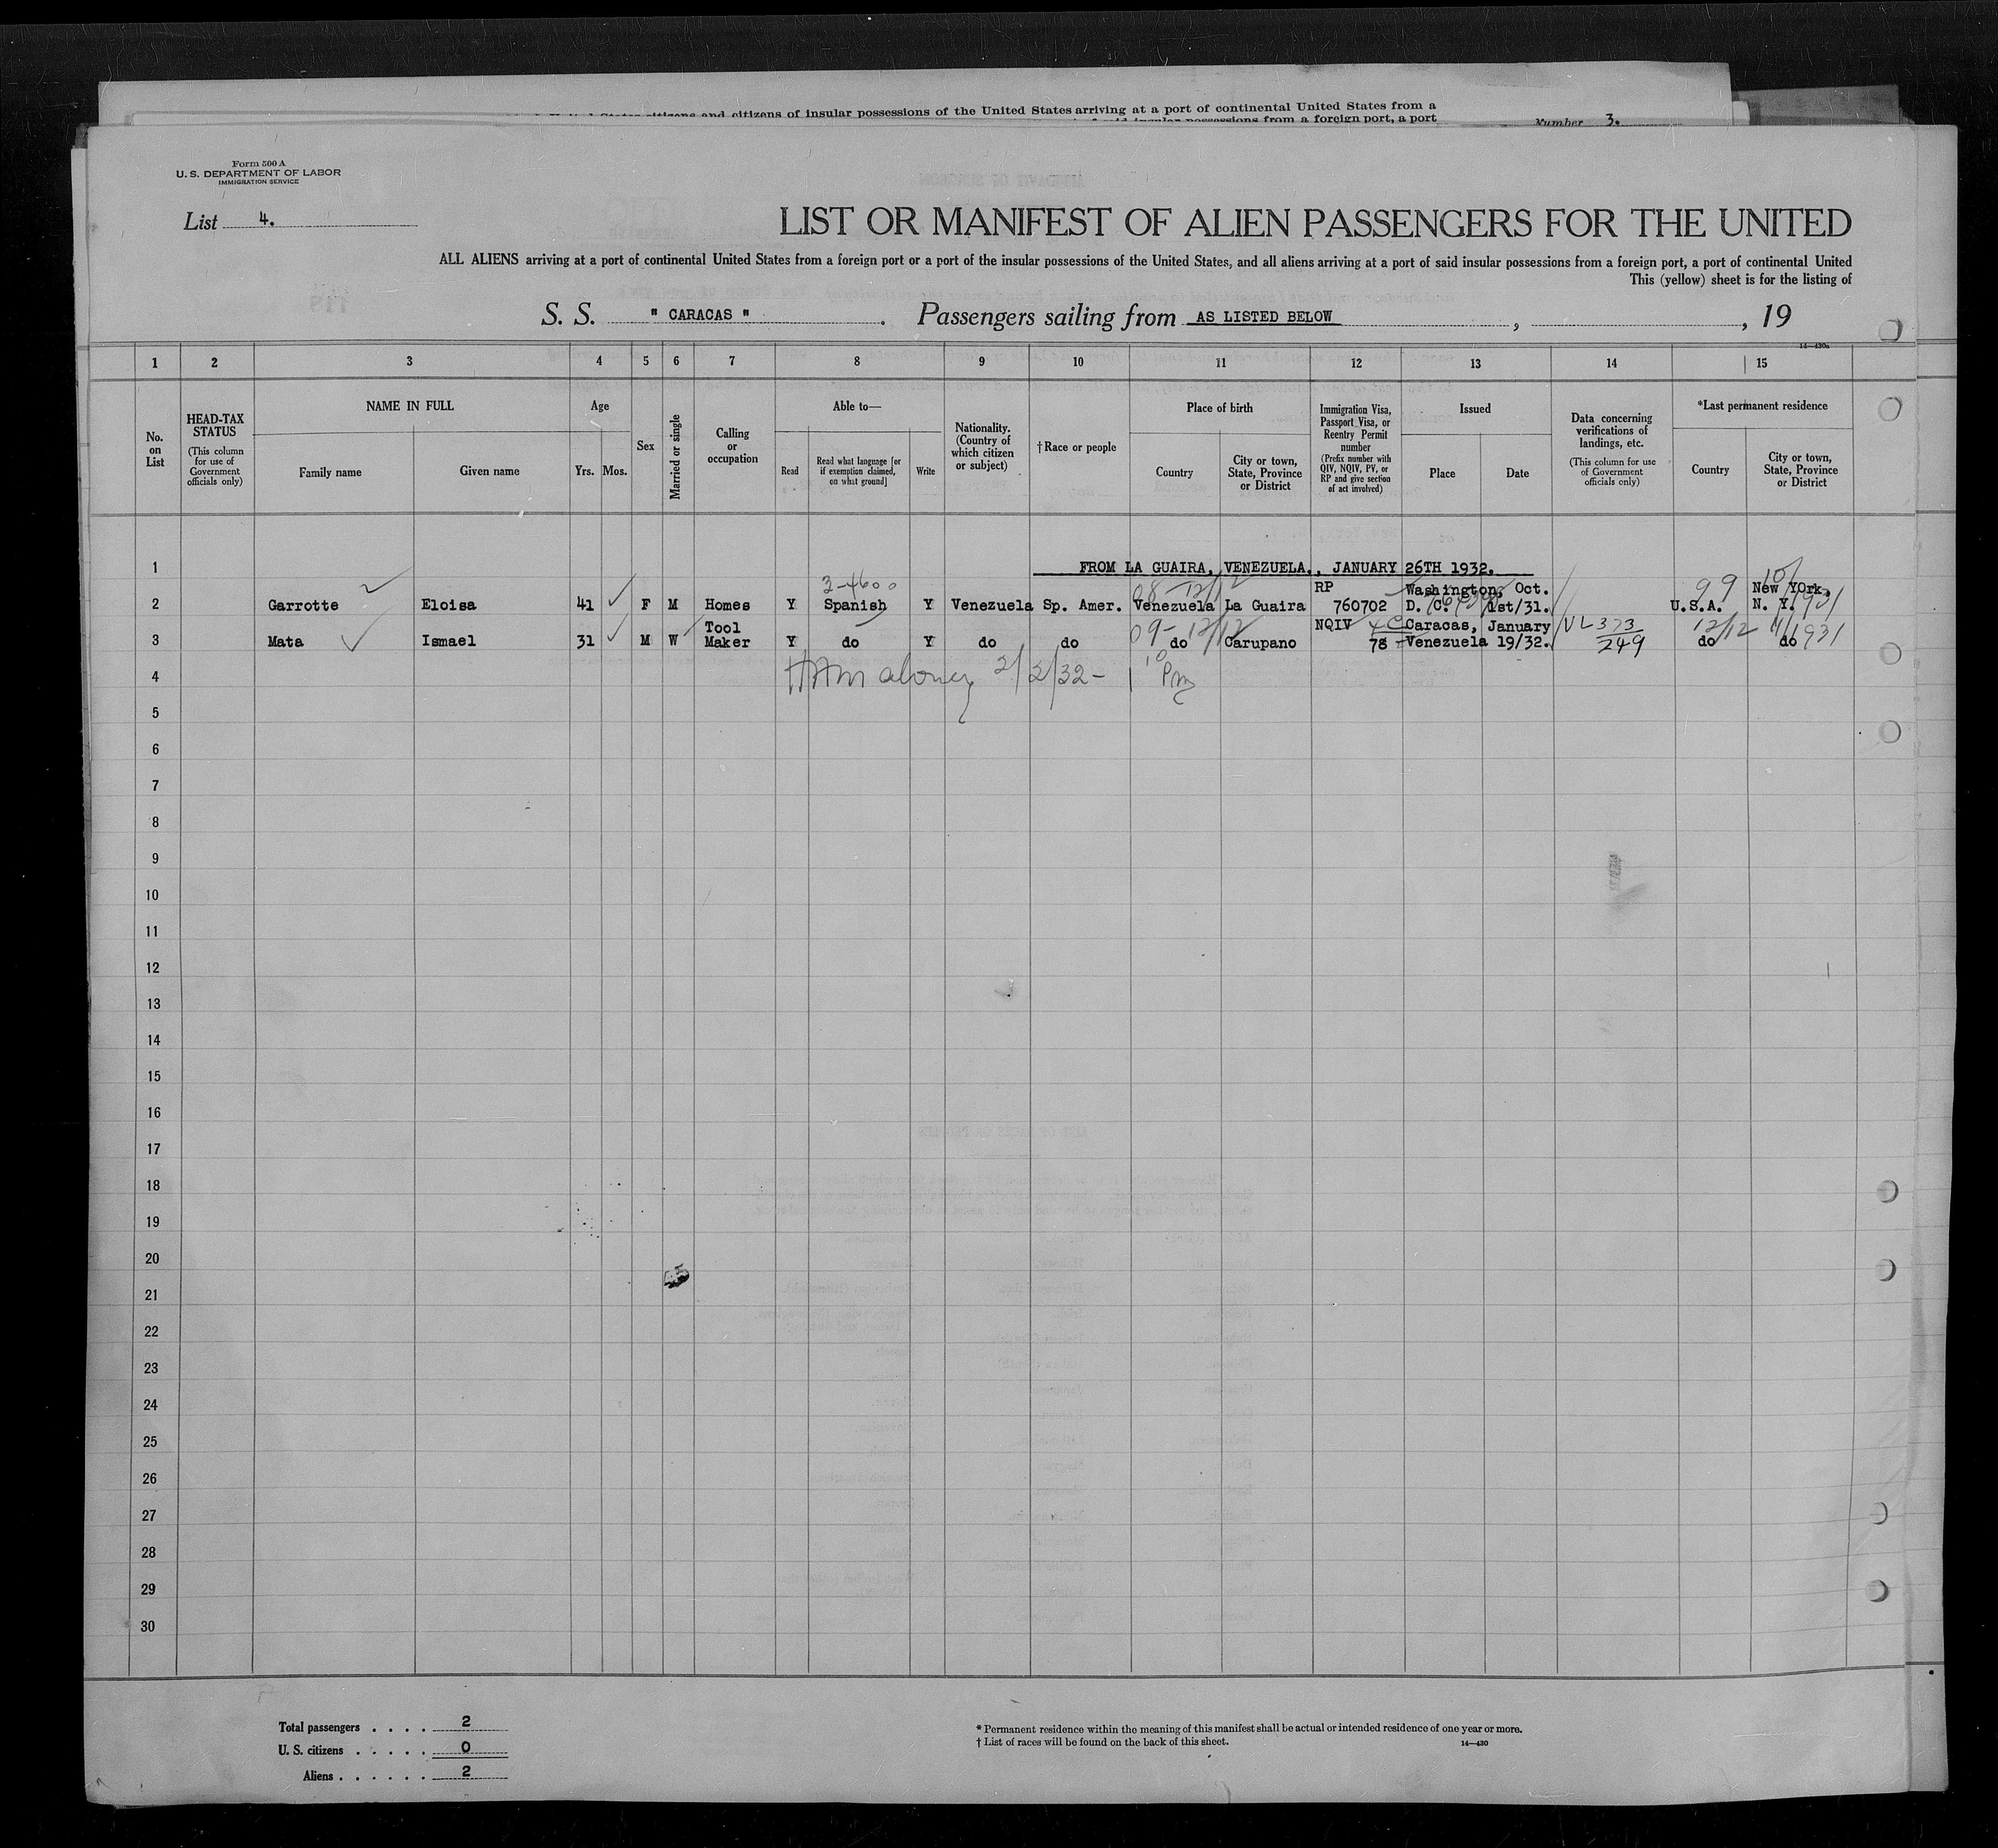 citizens and citizens of insular possessions of the United States arriving at a port of continental United States from a
possessions from a foreign port, a port
Number 3.
Form 500 A
U. S. DEPARTMENT OF LABOR
IMMIGRATION SERVICE
List 4.
LIST OR MANIFEST OF ALIEN PASSENGERS FOR THE UNITED
ALL ALIENS arriving at a port of continental United States from a foreign port or a port of the insular possessions of the United States, and all aliens arriving at a port of said insular possessions from a foreign port, a port of continental United
This (yellow) sheet is for the listing of
S. S. " CARACAS ". Passengers sailing from AS LISTED BELOW , , 19
14—430a
1 2 3 4 5 6 7 8 9 10 11 12 13 14 15
No. on List
HEAD-TAX STATUS (This column for use of Government officials only)
NAME IN FULL
Family name Given name
Age
Yrs. Mos.
Sex
Married or single
Calling or occupation
Able to—
Read Read what language [or if exemption claimed, on what ground] Write
Nationality. (Country of which citizen or subject)
† Race or people
Place of birth
Country City or town, State, Province or District
Immigration Visa, Passport Visa, or Reentry Permit number (Prefix number with QIV, NQIV, PV, or RP and give section of act involved)
Issued
Place Date
Data concerning verifications of landings, etc. (This column for use of Government officials only)
*Last permanent residence
Country City or town, State, Province or District
1 FROM LA GUAIRA, VENEZUELA., JANUARY 26TH 1932.
3-4600 RP Washington, Oct. 99 10/ New YOrk,
2 Garrotte Eloisa 41 F M Homes Y Spanish Y Venezuela Sp. Amer. Venezuela La Guaira 760702 D. C. 1st/31. U.S.A. N. Y. 1931
Tool 09- 12/12 NQIV 4C Caracas, January VL 373 12/12 11/1931
3 Mata Ismael 31 M W Maker Y do Y do do do Carupano 78 Venezuela 19/32. 249 do do
4 2/2/32- 1 10 Pm
5
6
7
8
9
10
11
12
13
14
15
16
17
18
19
20
45
21
22
23
24
25
26
27
28
29
30
Total passengers . . . . 2
U. S. citizens . . . . . 0
Aliens . . . . . . 2
* Permanent residence within the meaning of this manifest shall be actual or intended residence of one year or more.
† List of races will be found on the back of this sheet.
14—430